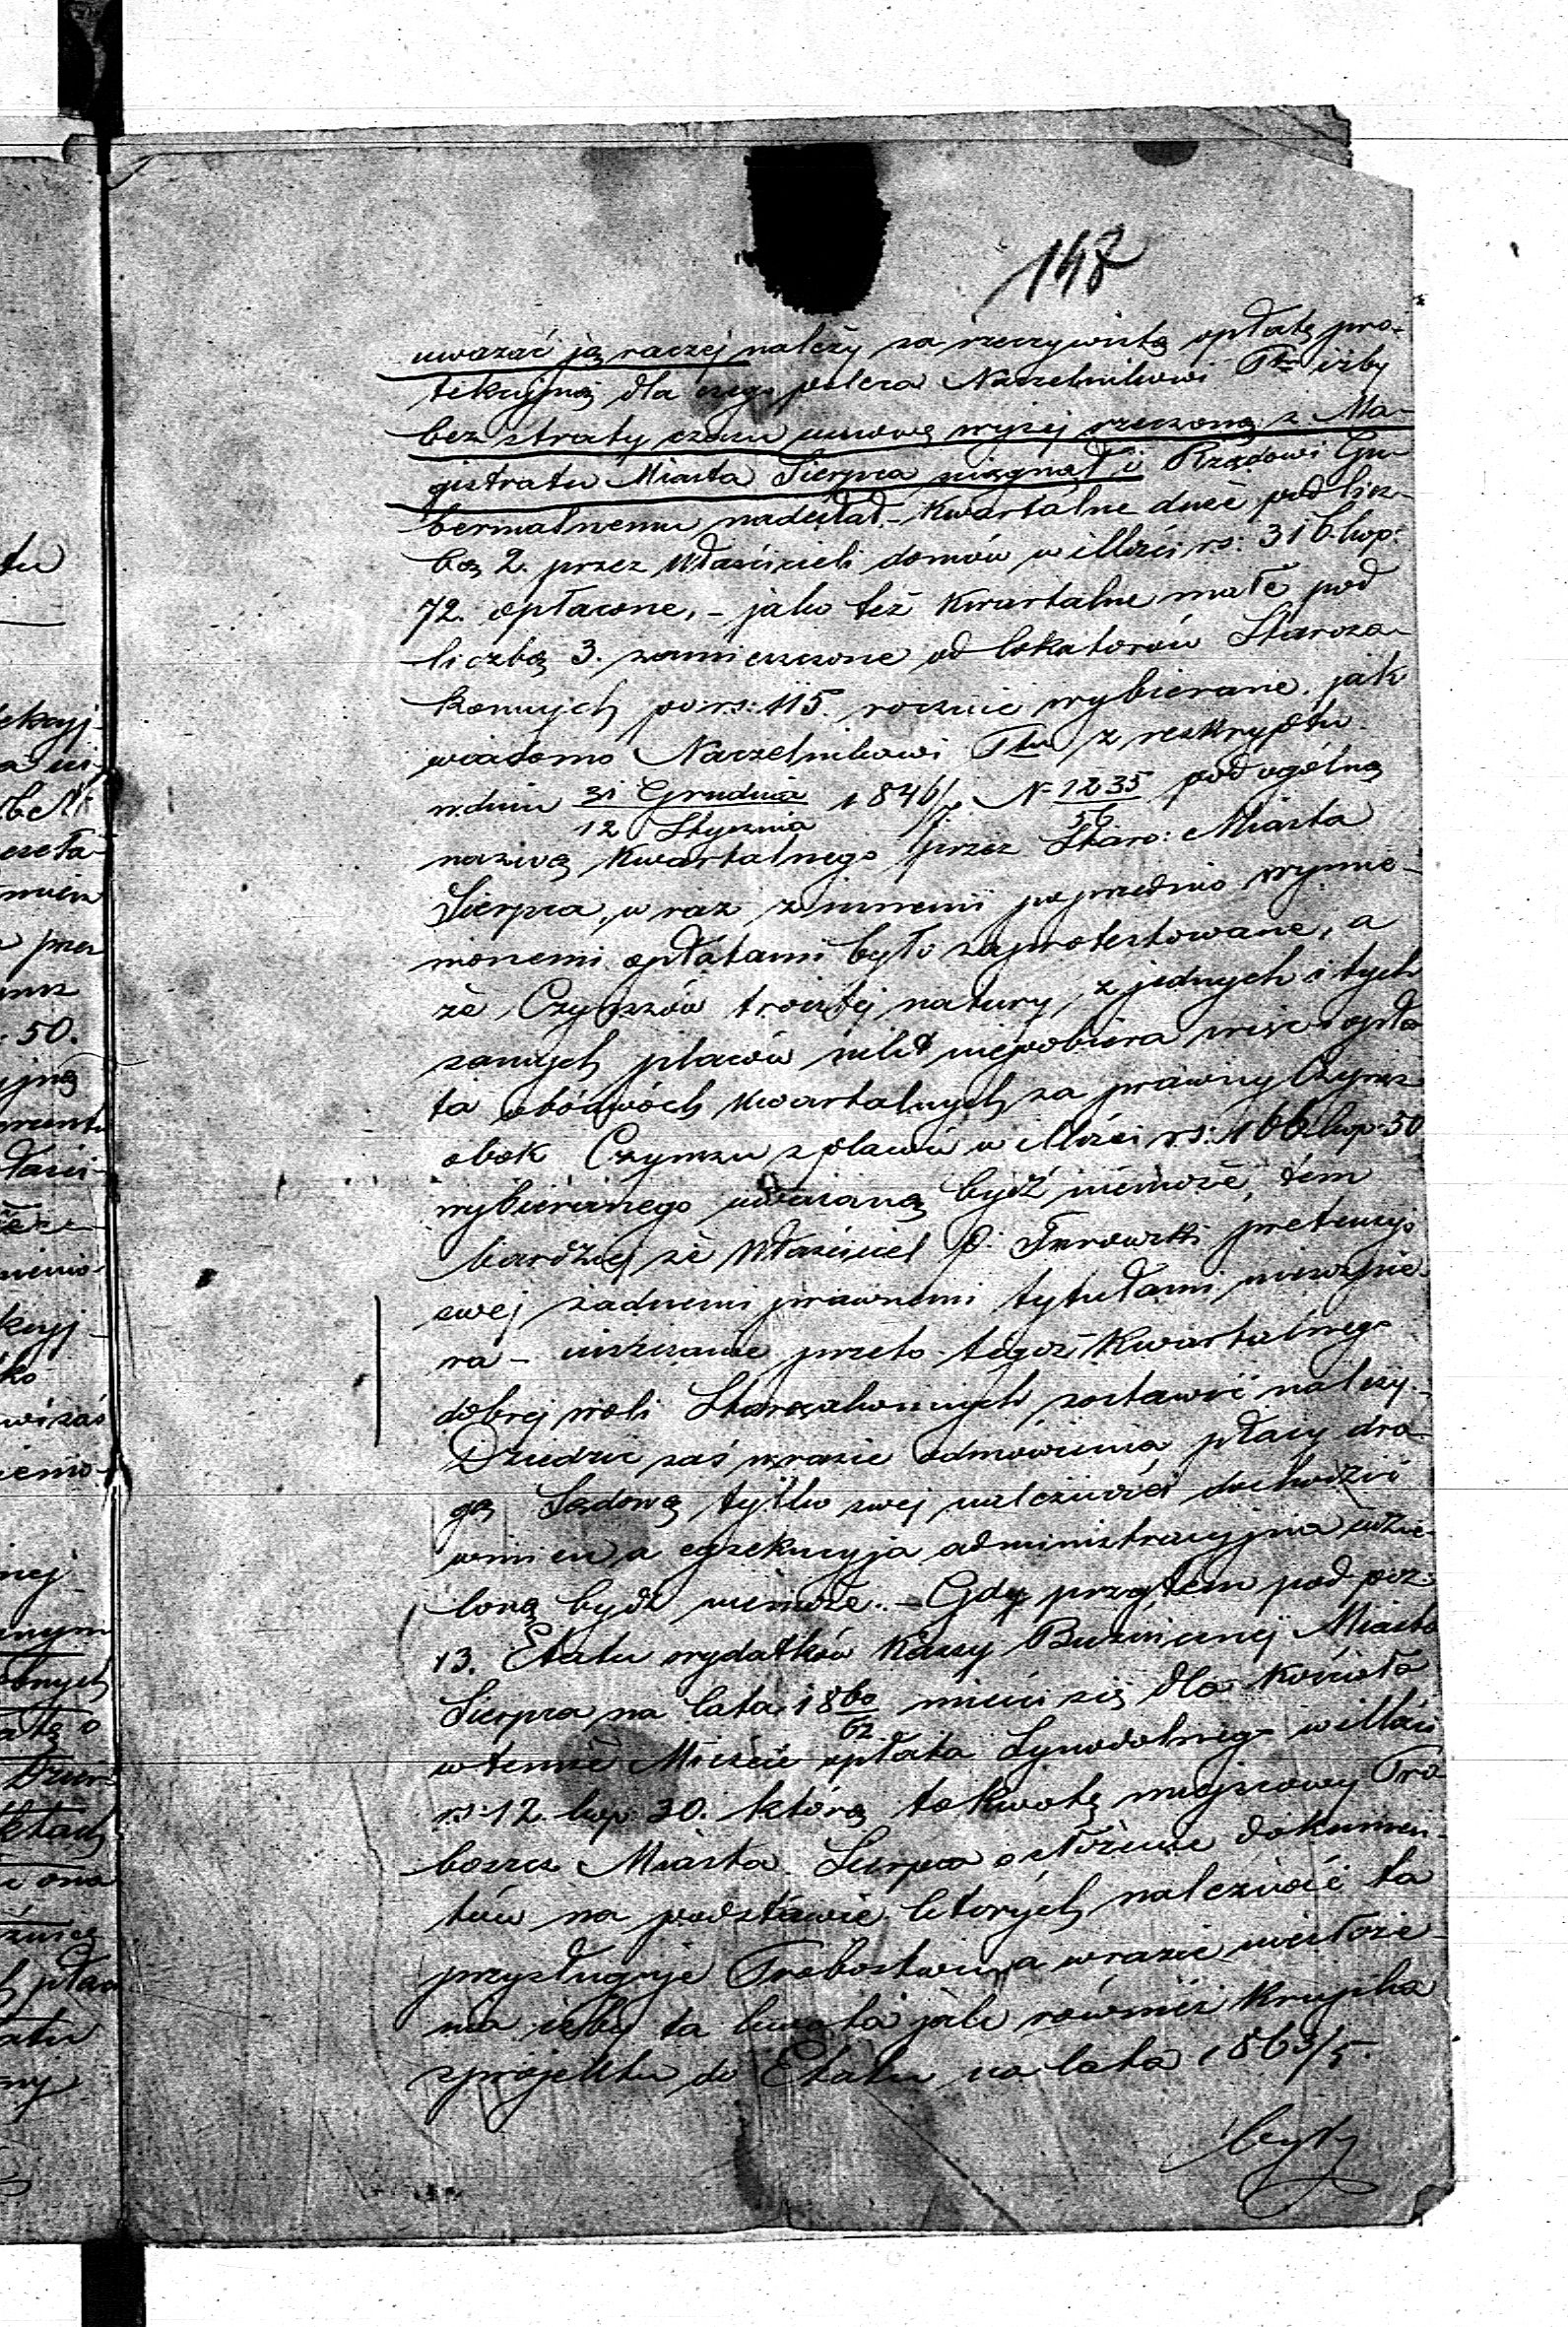 147
uważać ją raczej należy za rzeczywistą opłatę pro-
tekcyjną dla czego poleca Naczelnikowi Ptu iżby
bez straty czasu umowę wyżej rzeczoną z Ma-
gistratu Miasta Sierpca ściągnął i Rządowi Gu-
bernialnemu nadesłał. – Kwartalne duże pod licz-
bą 2. przez Właścicieli domów w illości rs: 316 kop:
72. opłacone, – jako też Kwartalne małe pod
liczbą 3. zamieszczone od lokatorów Staroza-
konnych po rs: 115. rocznie wybierane, jak
wiadomo Naczelnikowi Ptu z reskryptu
w dniu 31 Grudnia / 12 Stycznia 1846/7 N 1235/56 pod ogólną
nazwą Kwartalnego przez Staro: Miasta
Sierpca, w raz z innemi poprzednio wymie-
nionemi opłatami było zaprotestowane, a
że Czynszów troistej natury, z jednych i tych
samych placów nikt niepobiera więc i opła
ta obódwóch Kwartalnych za prawny Czynsz
obok Czynszu z placów w illości rs: 166 kop: 50
wybieranego uważaną bydź niemoże, tem
bardziej że Właściciel P: Turowski pretensyi
swej żadnemi prawnemi tytułami niewspie-
ra – uiszczanie przeto tegoż Kwartalnego
dobrej woli Starozakonnych zostawić należy. –
Dziedzic zaś w razie odmówienia płacy dro-
gą Sądową tylko swej należności dochodzić
winien a egzekucyja administracyjna udzie-
loną bydź niemoże. – Gdy przytem pod poz:
13. Etatu wydatków Kassy Bużnicznej Miasta
Sierpca na lata 1860/62 mieści się dla Kościoła
w temże Mieście opłata Synodalnego w illości
rs: 12. kop: 30. którą to kwotę miejscowy Pro
boszcz Miasta Sierpca o złożenie dokumen-
tów na podstawie których należność ta
przysługuje Probostwu, a w razie niezłoże-
nia iżby ta kwota jak również krupka
z projektu do Etatu na lata 1863/5.
były